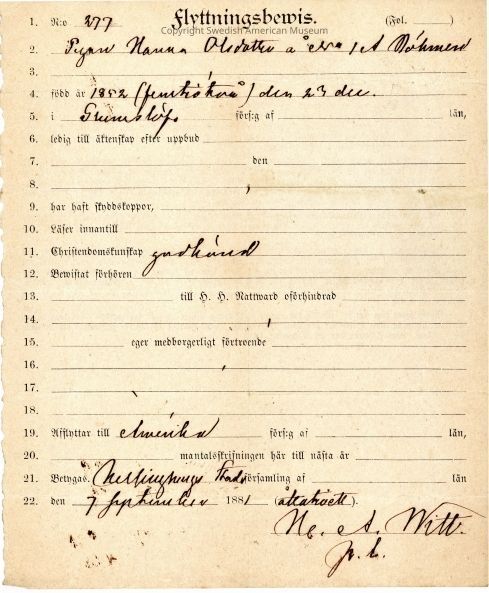 1. N:o 277 Flyttningsbewis. (Fol. )
Copyright Swedish American Museum
2. Pigan Hanna Olsdotter å
3.
4. född år 1852 (femtitvå) den 23 dec.
5. i förs:g af län,
6. ledig till äktenskap efter uppbud
7. den
8.
9. har haft skyddskoppor,
10. Läser innantill
11. Christendomskunskap godkänd
12. Bewistat förhören
13. till H. H. Nattward oförhindrad
14.
15. eger medborgerligt förtroende
16.
17.
18.
19. Afflyttar till Amerika förs:g af län,
20. mantalsskrifningen här till nästa år
21. Betygas. Helsingborgs Stads församling af län
22. den 7 September 1881 (åttatioett).
A. Witt.